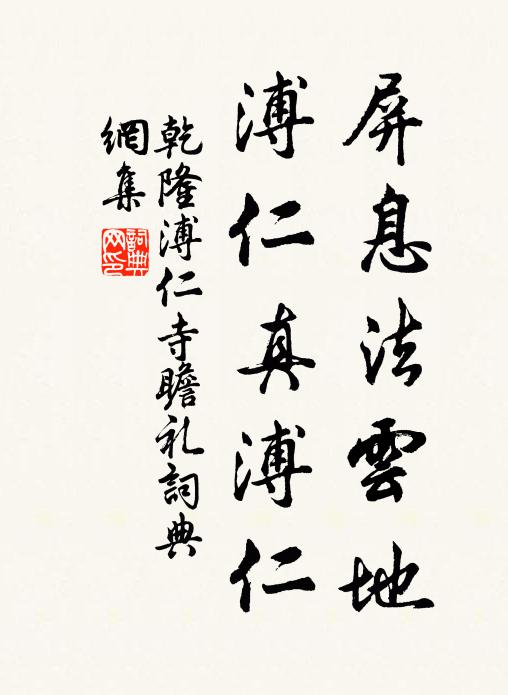 屏息法雲地
溥仁真溥仁
乾隆溥仁寺瞻礼詞典
網集
詞典
网印